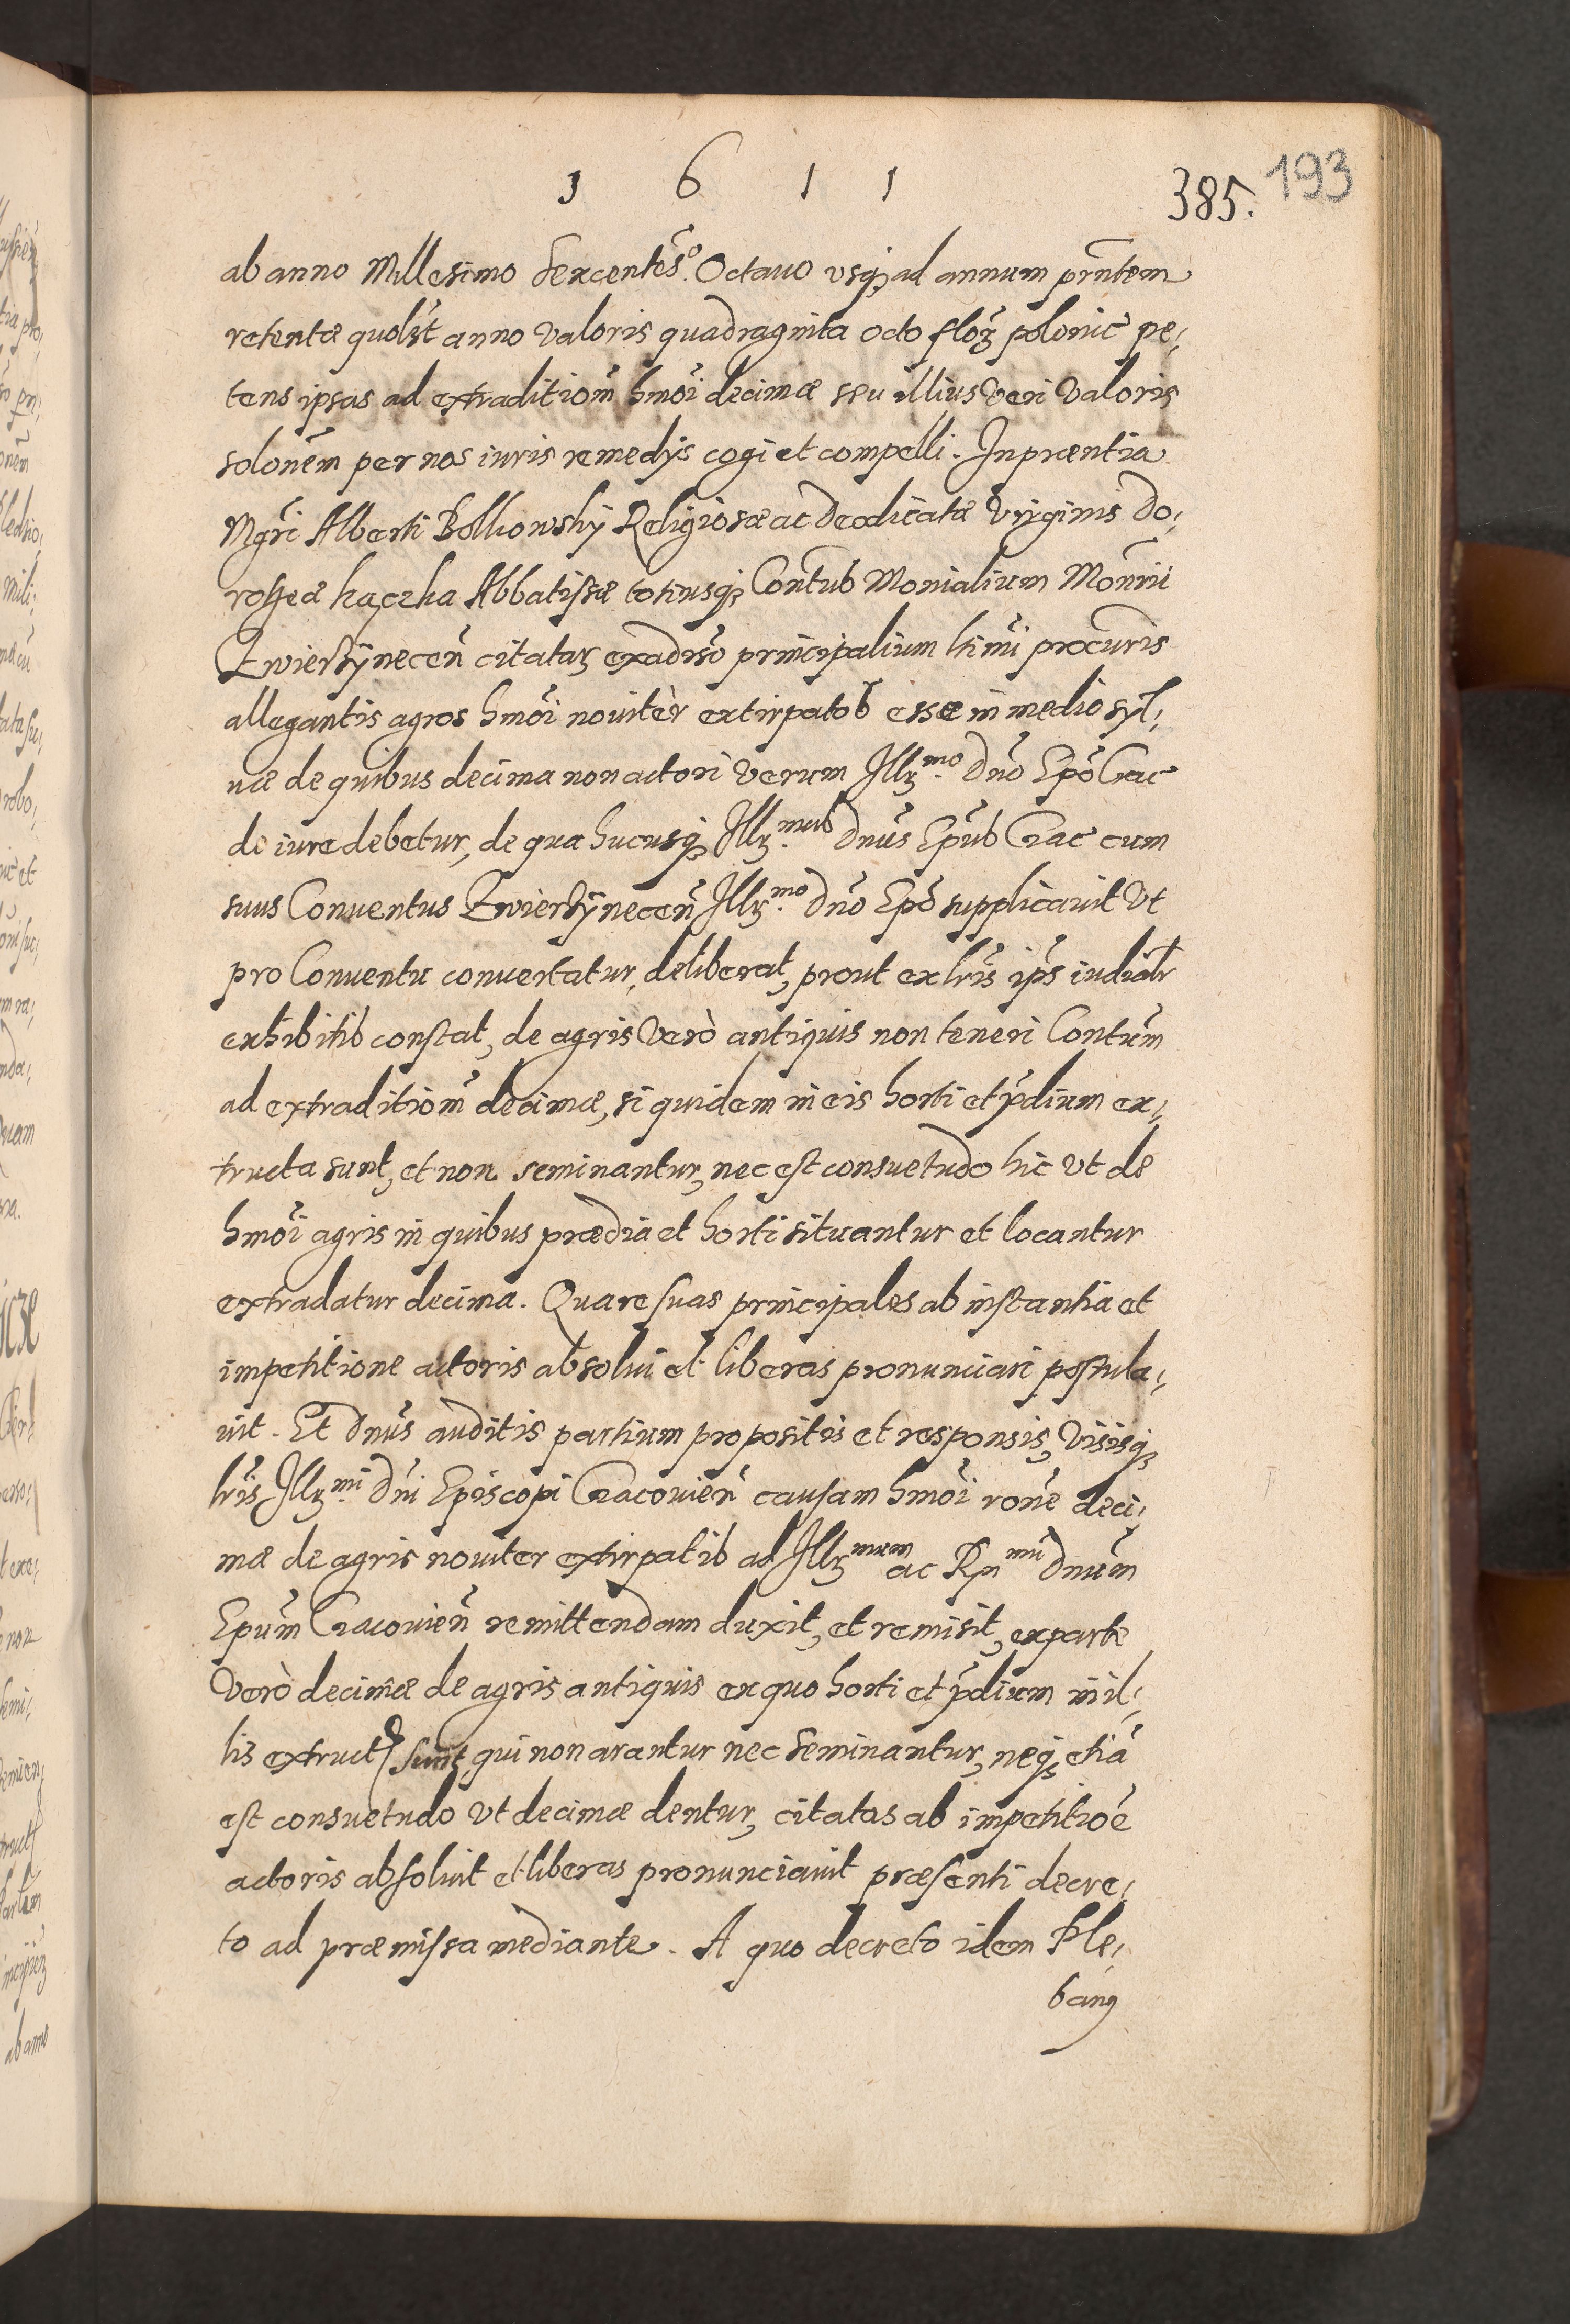 1 6 1 1
385. 193
ab anno Millesimo Sexcentẽs.o Octauo vsq3 ad annum prñtem
retentæ quolt̃ anno valoris quadraginta octo floꝝ polonic pe¡
tens ipsas ad extraditioñ hmõi decimæ seu illius veri valoris
solonẽm per nos iuris remedys cogi et compelli. In præntia
Mgr̃i Alberti Bolkowsky Religiosæ ac deodicatæ virginis do¡
rotheæ kączka Abbatissæ totiusq3 Conũtus Monialium Monrii
Zwierzÿnecen̄ citataꝝ ex adũso principalium ltimĩ procuris
allegantis agros hmõi nouitèr extirpatos esse in medio syl¡
uæ de quibus decima non actori verum Illꝝ.mo dnõ Epõ Crac
de iure debetur, de qua hucusq3 Illꝝ.mus dnũs Epũs Crac cum
suus Conuentus Zwierzÿnecen̄ Illꝝ.mo dnõ Epõ supplicauit vt
pro Conuentu conuertatur, deliberat, prout ex lrĩs ipĩs iudialr̃
exhibitis constat, de agris verò antiquis non teneri Contũm
ad extraditioñ decimæ, si quidem in eis horti et p̃dium ex¡
tructa sunt, et non seminantur, nec est consuetudo hic vt de
hmõi agris in quibus prædia et horti situantur et locantur
extradatur decima. Quare suas principales ab instantia et
impetitione actoris absolui et liberas pronunciari postula¡
uit. Et dnũs auditis partium propositis et responsis, visisq3
lrĩs Illꝝ.mi dnĩ Episcopi Cracouien̄ causam hmõi ronẽ deci¡
mæ de agris nouiter extirpatis ad Illꝝ mum ac Rn mũ dnũm
Epũm Cracouien̄ remittendam duxit, et remisit, ex parte
verò decimæ de agris antiquis ex quo horti et p̃dium in il¡
lis extruct sunt, qui non arantur nec seminantur, neq3 etiã
est consuetudo vt decimæ dentur, citatas ab impetitiõe
actoris absoluit et liberas pronunciauit præsenti decre¡
to ad præmissa mediante. A quo decreto idem Ple¡
banꝯ